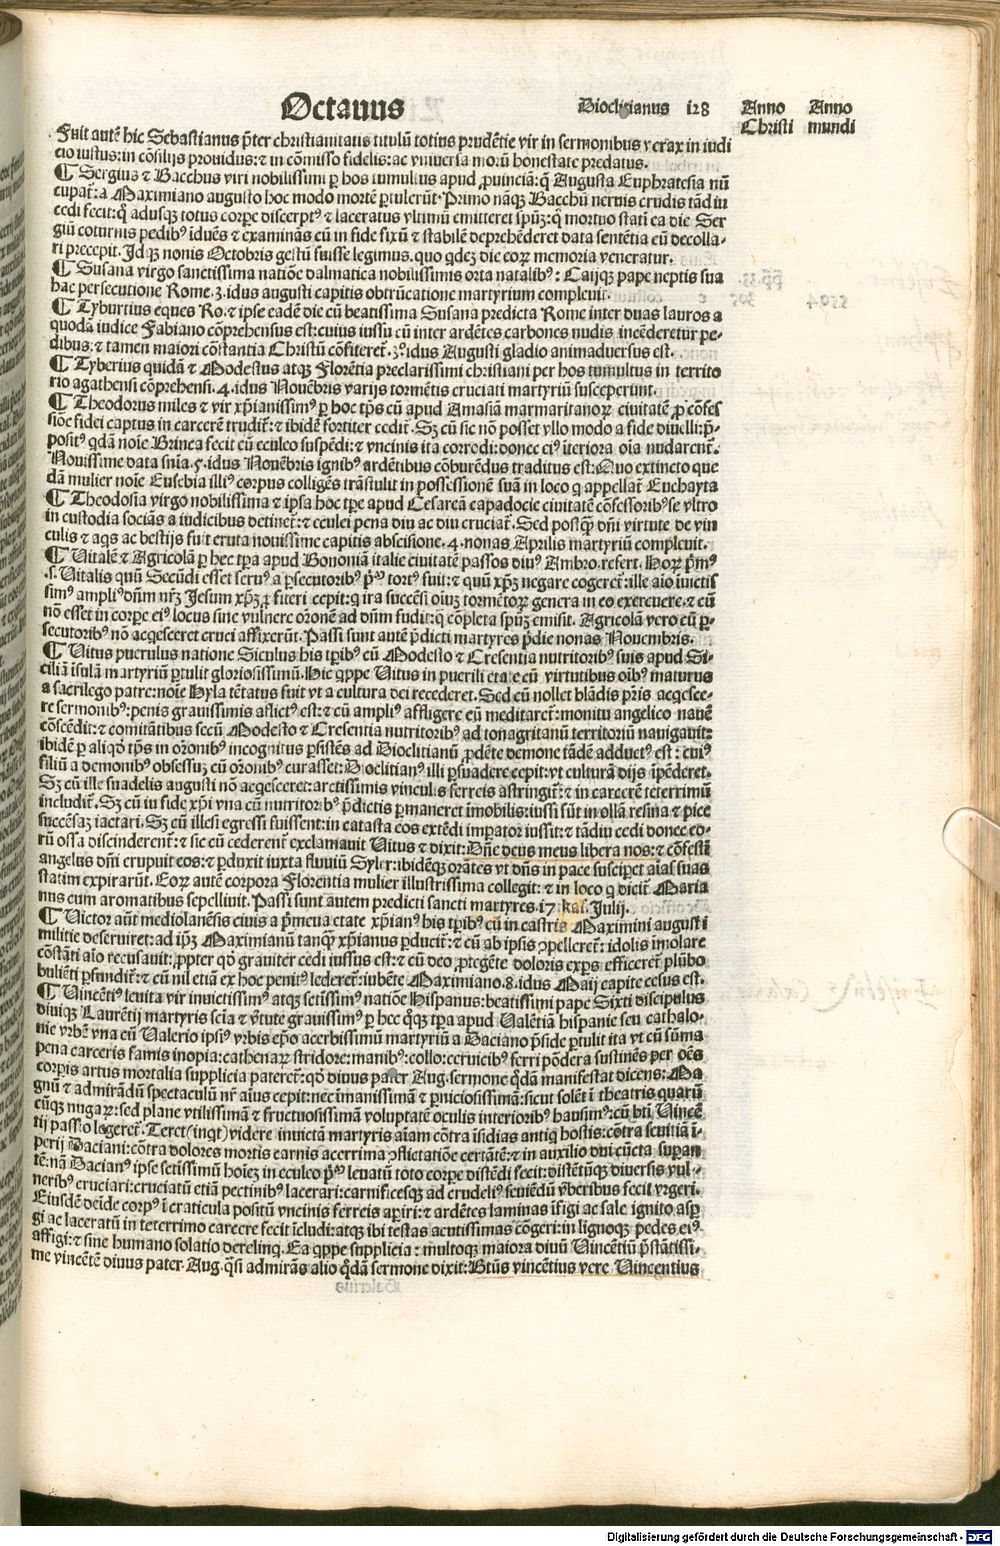 Octauus Dioclitianus 128 Anno Anno
Christi mundi
Fuit autē hic Sebastianus p̄ter christianitatis titulū totius prudētie vir in sermonibus verax in iudi
cio iustus: in cōsilijs prouidus: ⁊ in cōmisso fidelis: ac vniuersa morū honestate predatus.
¶ Sergius ⁊ Bacchus viri nobilissimi ꝑ hos tumultus apud ꝓuinciā: q̄ Augusta Euphratesia nū
cupat᷑: a Maximiano augusto hoc modo mortē ꝑtulerūt. Primo nāqꝫ Bacchū neruis crudis tādiu
cedi fecit: q̄ adusqꝫ totus corpe discerptꝰ ⁊ laceratus vltimū emitteret spūꝫ: q̄ mortuo stati ea die Ser
giū coturnis pedibꝰ idues ⁊ examinās cū in fide fixū ⁊ stabilē deprehēderet data sentētia eū decolla⸗
ri precepit. Idqꝫ nonis Octobris gestū fuisse legimus. quo qdeꝫ die eoꝝ memoria veneratur.
¶ Susana virgo sanctissima natiōe dalmatica nobilissimis orta natalibꝰ: Caijqꝫ pape neptis sua
hac persecutione Rome. 3. idus augusti capitis obtrūcatione martyrium compleuit.
¶ Tyburtius eques Ro. ⁊ ipse eadē die cū beatissima Susana predicta Rome inter duas lauros a
quodā iudice Fabiano cōprehensus est: cuius iussu cū inter ardētes carbones nudis incēderetur pe⸗
dibus: ⁊ tamen maiori cōstantia Christū cōfiteret᷑. 3. idus Augusti gladio animaduersus est.
¶ Tyberius quidā ⁊ Modestus atqꝫ Florētia preclarissimi christiani per hos tumultus in territo
rio agathensi cōprehensi. 4. idus Nouēbris varijs tormētis cruciati martyriū susceperunt.
¶ Theodorus miles ⁊ vir xp̄ianissimꝰ ꝑ hoc tp̄s cū apud Amasiā marmaritanoꝝ ciuitatē ꝓ cōfes
siōe fidei captus in carcerē trudit᷑: ⁊ ibidē fortiter cedit᷑. Sꝫ cū sic nō posset vllo modo a fide diuelli: p̄⸗
positꝰ qdā noīe Brinca fecit cū eculeo suspēdi: ⁊ vncinis ita corrodi: donec eiꝰ īteriora oīa nudarent᷑.
Nouissime data sn̄ia. 5. idus Nouēbris ignibꝰ ardētibus cōburēdus traditus est: Quo extincto que
dā mulier noīe Eusebia illiꝰ corpus colligēs trāstulit in possessionē suā in loco q appellat᷑ Euchayta
¶ Theodosia virgo nobilissima ⁊ ipsa hoc tꝑe apud Cesareā capadocie ciuitatē cōfessoribꝰ se vltro
in custodia sociās a iudicibus detinet᷑: ⁊ eculei pena diu ac diu cruciat᷑. Sed postqꝫ dn̄i virtute de vin
culis ⁊ aqs ac bestijs fuit eruta nouissime capitis abscisione. 4. nonas Aprilis martyriū compleuit.
¶ Uitalē ⁊ Agricolā ꝑ hec tꝑa apud Bononiā italie ciuitatē passos diuꝰ Ambro. refert. Hoꝝ p̄mꝰ
.s. Uitalis quū Secūdi esset seruꝰ a ꝑsecutoribꝰ p̄ꝰ tortꝰ fuit: ⁊ quū xp̄ꝫ negare cogeret᷑: ille aīo inuictis
simꝰ ampliꝰ dn̄m nr̄ꝫ Jesum xp̄ꝫ ꝓfiteri cepit: q ira succēsi oīuꝫ tormētoꝝ genera in eo exercuere. ⁊ cū
nō esset in corpe eiꝰ locus sine vulnere orōnē ad dn̄m fudit: q cōpleta spūꝫ emisit. Agricolā vero cū ꝑ⸗
secutoribꝰ nō acqesceret cruci affixerūt. Passi sunt autē p̄dicti martyres p̄die nonas Nouembris.
¶ Uitus puerulus natione Siculus his tꝑibꝰ cū Modesto ⁊ Cresentia nutritoribꝰ suis apud Si⸗
ciliā īsulā martyriū ꝑtulit gloriosissimū. Hic qppe Uitus in puerili etate cū virtutibus oībꝰ maturus
a sacrilego patre: noīe Hyla tētatus fuit vt a cultura dei recederet. Sed cū nollet blādis pr̄is acqesce⸗
re sermonibꝰ: penis grauissimis aflictꝰ est: ⁊ cū ampliꝰ affligere eū meditaret᷑: monitu angelico nauē
cōscēdit: ⁊ comitātibus secū Modesto ⁊ Cresentia nutritoribꝰ ad tonagritanū territoriū nauigauit:
ibidē ꝑ aliqđ tp̄s in orōnibꝰ incognitus ꝑsistēs ad Dioclitianū ꝓdēte demone tādē adductꝰ est: cuiꝰ
filiū a demonibꝰ obsessuꝫ cū orōnibꝰ curasset: Dioclitianꝰ illi ꝑsuadere cepit: vt culturā dijs īpēderet.
Sꝫ cū ille suadelis augusti nō acqesceret: arctissimis vinculis ferreis astringit᷑: ⁊ in carcerē teterrimū
includit᷑. Sꝫ cū iu fide xp̄i vna cū nutritoribꝰ p̄dictis ꝑmaneret īmobilis: iussi sūt in ollā resina ⁊ pice
succēsaꝫ iactari. Sꝫ cū illesi egressi fuissent: in catasta eos extēdi imꝑator iussit: ⁊ tādiu cedi donec eo⸗
rū ossa discinderent᷑: ⁊ sic cū cederent᷑ exclamauit Uitus ⁊ dixit: Dn̄e deus meus libera nos: ⁊ cōfestī
angelus dn̄i eripuit eos: ⁊ ꝑduxit iuxta fluuiū Syler: ibidēqꝫ orātes vt dn̄s in pace susciꝑet aīas suas
statim expirarūt. Eoꝝ autē corpora Florentia mulier illustrissima collegit: ⁊ in loco q dicit᷑ Maria
nus cum aromatibus sepelliuit. Passi sunt autem predicti sancti martyres. 17. kal. Julij.
¶ Uictor aūt mediolanēsis ciuis a p̄meua etate xp̄ianꝰ his tꝑibꝰ cū in castris Maximini augusti
militie deseruiret: ad ipꝫ Maximianū tanqꝫ xp̄ianus ꝑducit᷑: ⁊ cū ab ipsis ꝯpelleret᷑: idolis īmolare
cōstāti aīo recusauit: ꝓpter qđ grauiter cedi iussus est: ⁊ cū deo ꝓtegēte doloris expꝰs efficeret᷑ plūbo
bulieti ꝑfundit᷑: ⁊ cū nil etiā ex hoc penitꝰ lederet᷑: iubēte Maximiano. 8. idus Maij capite cesus est.
¶ Uincētiꝰ leuita vir inuictissimꝰ atqꝫ sctissimꝰ natiōe Hispanus: beatissimi pape Sixti discipulus
diuiqꝫ Laurētij martyris scīa ⁊ v̄tute grauissimꝰ ꝑ hec qqꝫ tꝑa apud Ualētiā hispanie seu cathalo⸗
nie vrbē vna cū Ualerio ipsiꝰ vrbis ep̄o acerbissimū martyriū a Daciano p̄side ꝑtulit ita vt cū sūma
pena carceris famis inopia: cathenaꝝ stridore: manibꝰ: collo: ceruicibꝰ ferri pōdera sustinēs per oēs
corꝑis artus mortalia supplicia pateret᷑: qđ diuus pater Aug. sermone qdā manifestat dicens: Ma
gnū ⁊ admirādū spectaculū nr̄ aīus cepit: nec īmanissimā ⁊ ꝑniciosissimā: sicut solēt ī theatris quarū
cūqꝫ nugaꝝ: sed plane vtilissimā ⁊ fructuosissimā voluptatē oculis interioribꝰ hausimꝰ: cū bti Uincē
tij passio legeret᷑. Teret (inqt) videre inuictā martyris aīam cōtra īsidias antiq hostis: cōtra seuitiā ī⸗
perij Daciani: cōtra dolores mortis carnis acerrima ꝯflictatiōe certātē: ⁊ in auxilio dn̄i cūcta suꝑan
tē: nā Dacianꝰ ipse setissimū hoīeꝫ in eculeo p̄ꝰ leuatū toto corpe distēdi fecit: distētūqꝫ diuersis vul⸗
neribꝰ cruciari: cruciatū etiā pectinibꝰ lacerari: carnificesqꝫ ad crudeliꝰ seuiēdū v̄beribus fecit vrgeri.
Eiusdē deīde corpꝰ ī craticula positū vncinis ferreis aꝑiri: ⁊ ardētes laminas īfigi ac sale ignito asꝑ
gi ac laceratū in teterrimo carcere fecit īcludi: atqꝫ ibi testas acutissimas cōgeri: in lignoqꝫ pedes eiꝰ
affigi: ⁊ sine humano solatio derelinq. Ea qppe supplicia: multoqꝫ maiora diuū Uincētiū p̄stātissi⸗
me vincētē diuus pater. Aug. qsi admirās alio qdā sermone dixit: Btūs vincētius vere Uincentius
Digitalisierung gefördert durch die Deutsche Forschungsgemeinschaft - DFG